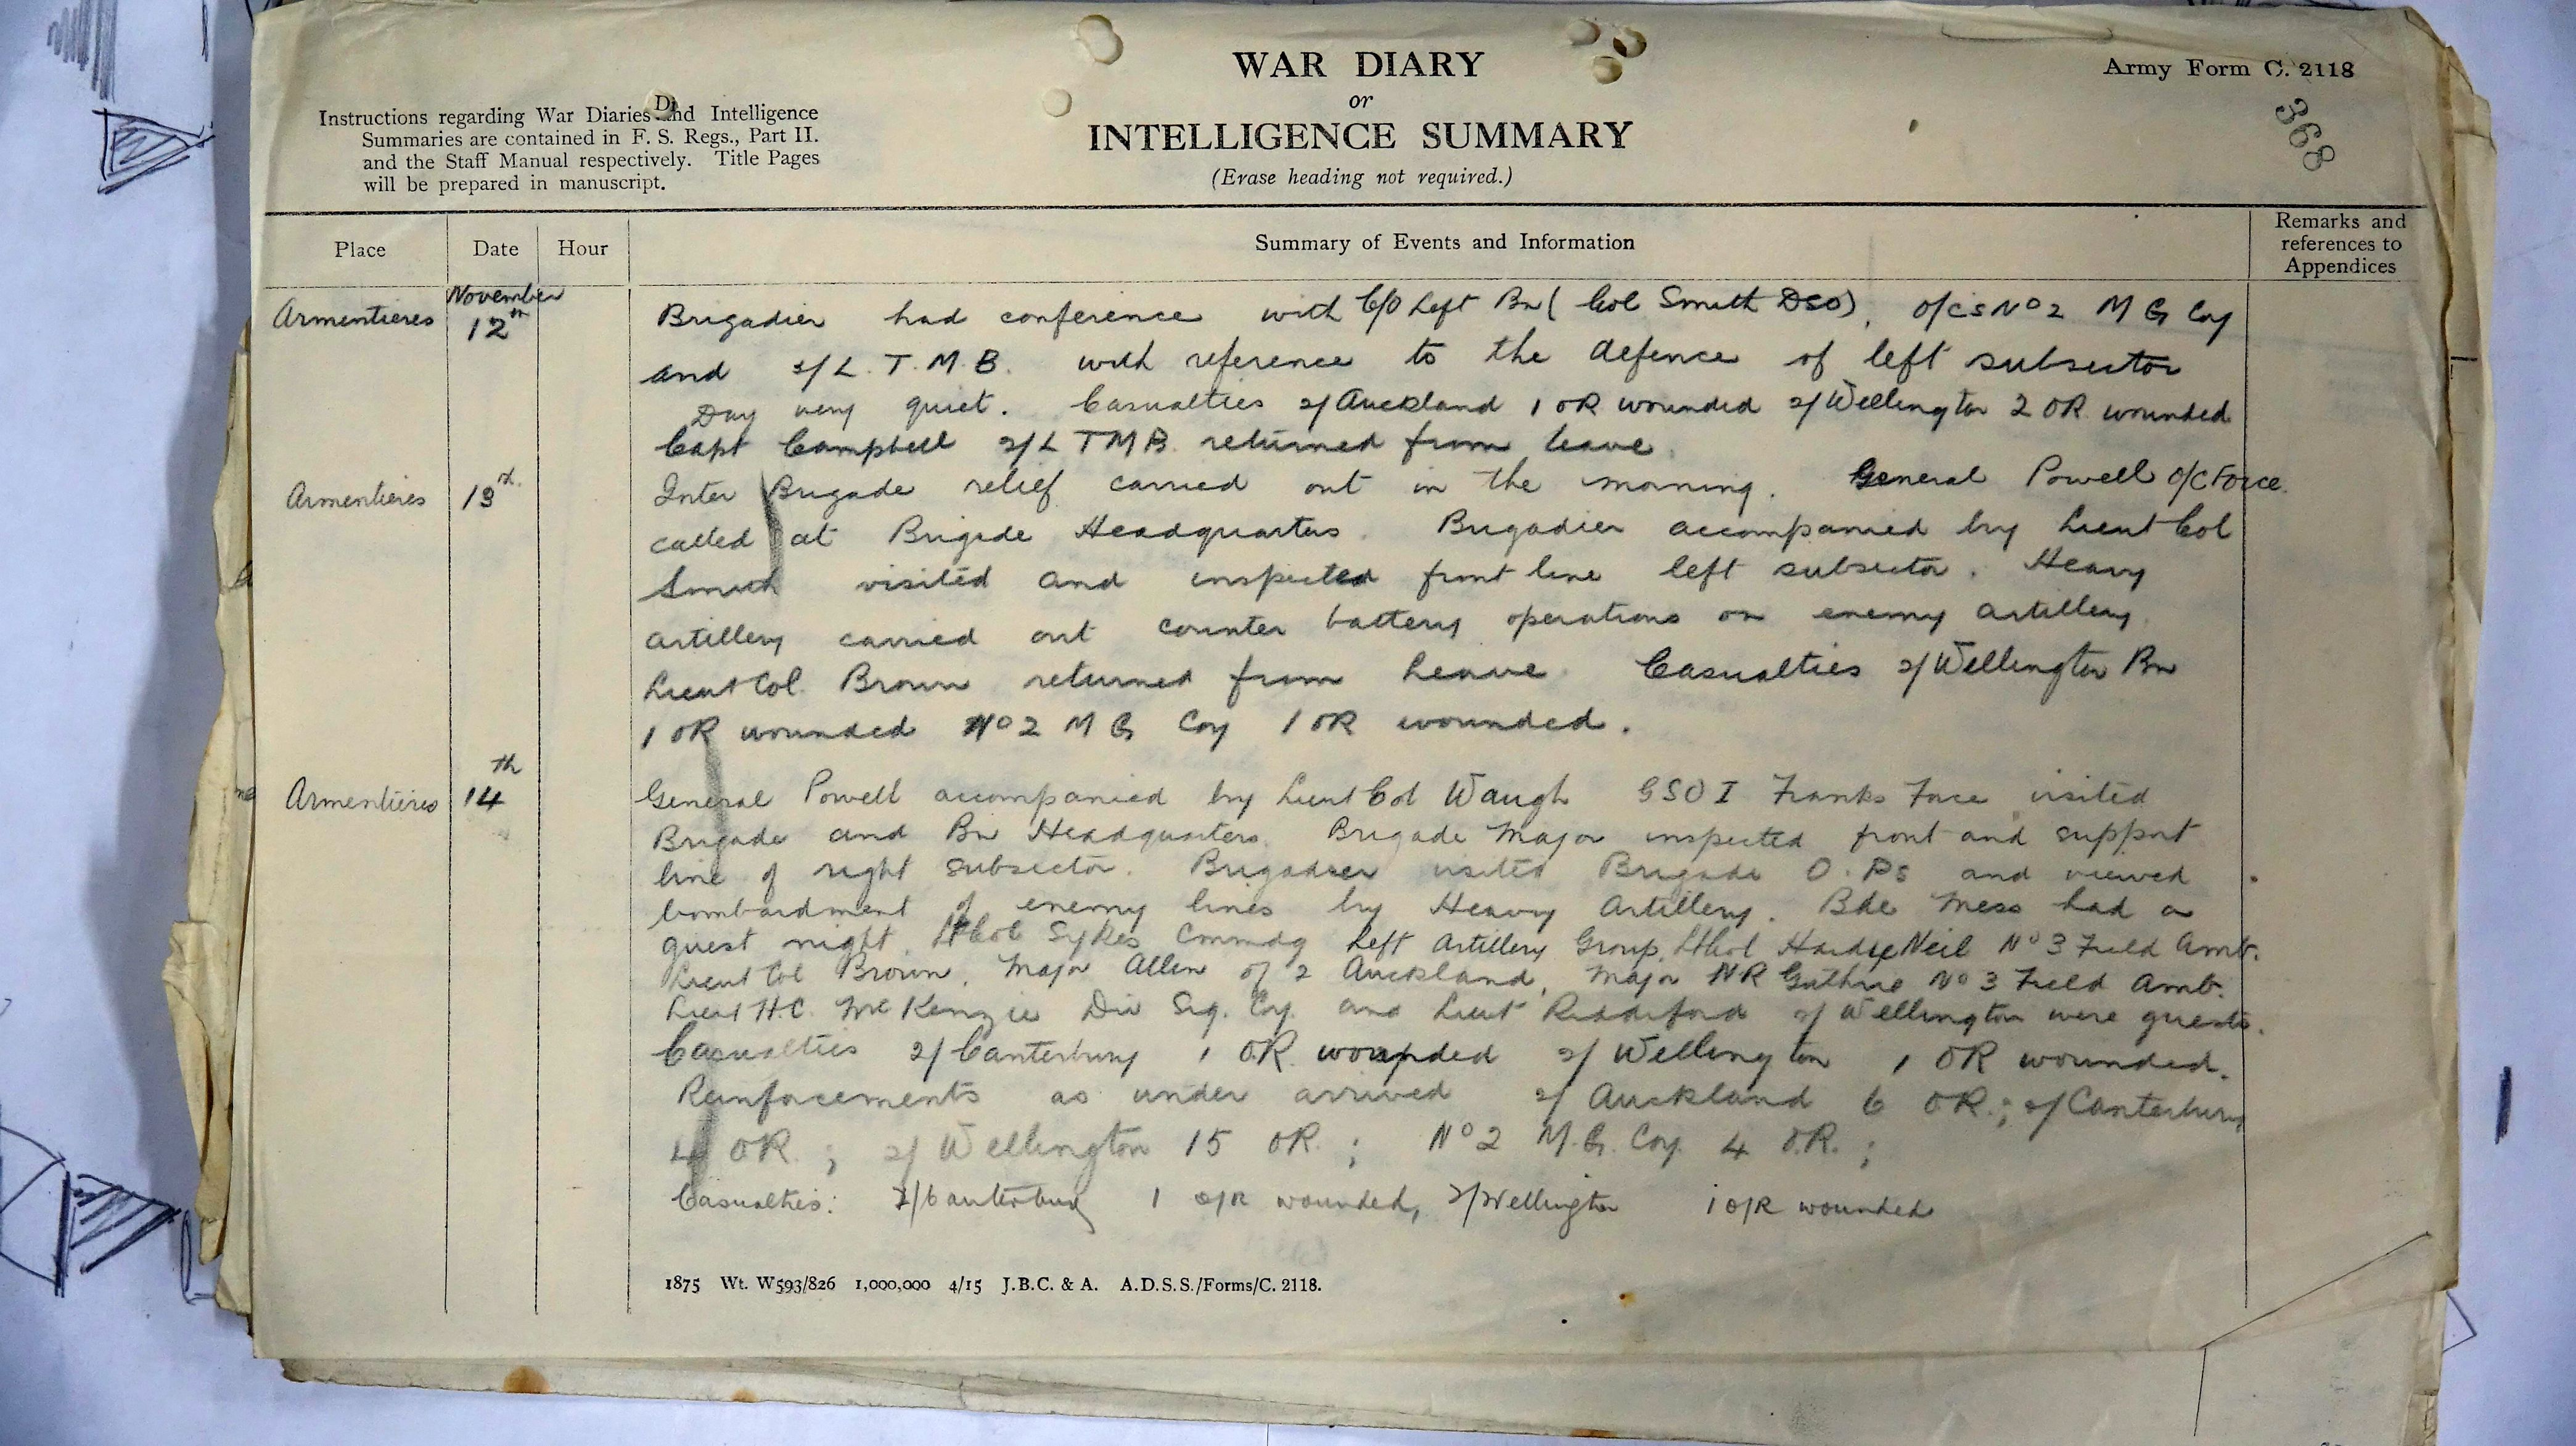 WAR DIARY
or
INTELLIGENCE SUMMARY
(Erase heading not required.)
Army Form C. 2118
368
Instructions regarding War Diaries and Intelligence
Summaries are contained in F. S. Regs., Part II.
and the Staff Manual respectively. Title Pages
will be prepared in manuscript.
Di
Place Date Hour Summary of Events and Information Remarks and references to Appendices
November
Armentieres 12th Brigadier had conference with C/O Left Bn (Col Smith DSO), O/Cs No 2 M G Coy
and 2/L.T.M.B. with reference to the defence of left subsector
Day very quiet. Casualties 2/Auckland 1 OR wounded 2/Wellington 2 OR wounded
Capt Campbell 2/L TMB returned from leave.
Armentieres 13rd. Inter Brigade relief carried out in the morning. General Powell O/C Force
called at Brigade Headquarters. Brigadier accompanied by Lieut Col
Smith visited and inspected front line left subsector. Heavy
artillery carried out counter battery operations on enemy artillery.
Lieut Col. Brown returned from leave. Casualties 2/Wellington Bn
1 OR wounded No 2 M G Coy 1 OR wounded.
Armentieres 14th General Powell accompanied by Lieut Col Waugh GSO I Franks Force visited
Brigade and Bn Headquarters. Brigade Major inspected front and support
line of right subsector. Brigadier visited Brigade O.Ps and viewed
bombardment of enemy lines by Heavy Artillery. Bde Mess had a
guest night. Lt Col Sykes Commdg Left Artillery Group, Lt Col Hardie Neil No 3 Field Amb.
Lieut Col Brown, Major Allen of 2 Auckland, Major NR Guthrie No 3 Field Amb.
Lieut H.C. McKenzie Div Sig. Coy. and Lieut Riddiford 2/Wellington were guests.
Casualties 2/Canterbury 1 OR wounded 2/Wellington 1 OR wounded.
Reinforcements as under arrived 2/Auckland 6 OR.; 2/Canterbury
4 OR.; 2/Wellington 15 OR.; No 2 M.G. Coy. 4 O.R.;
Casualties: 2/Canterbury 1 o/R wounded, 2/Wellington 1 o/R wounded
1875 Wt. W593/826 1,000,000 4/15 J.B.C. & A. A.D.S.S./Forms/C. 2118.